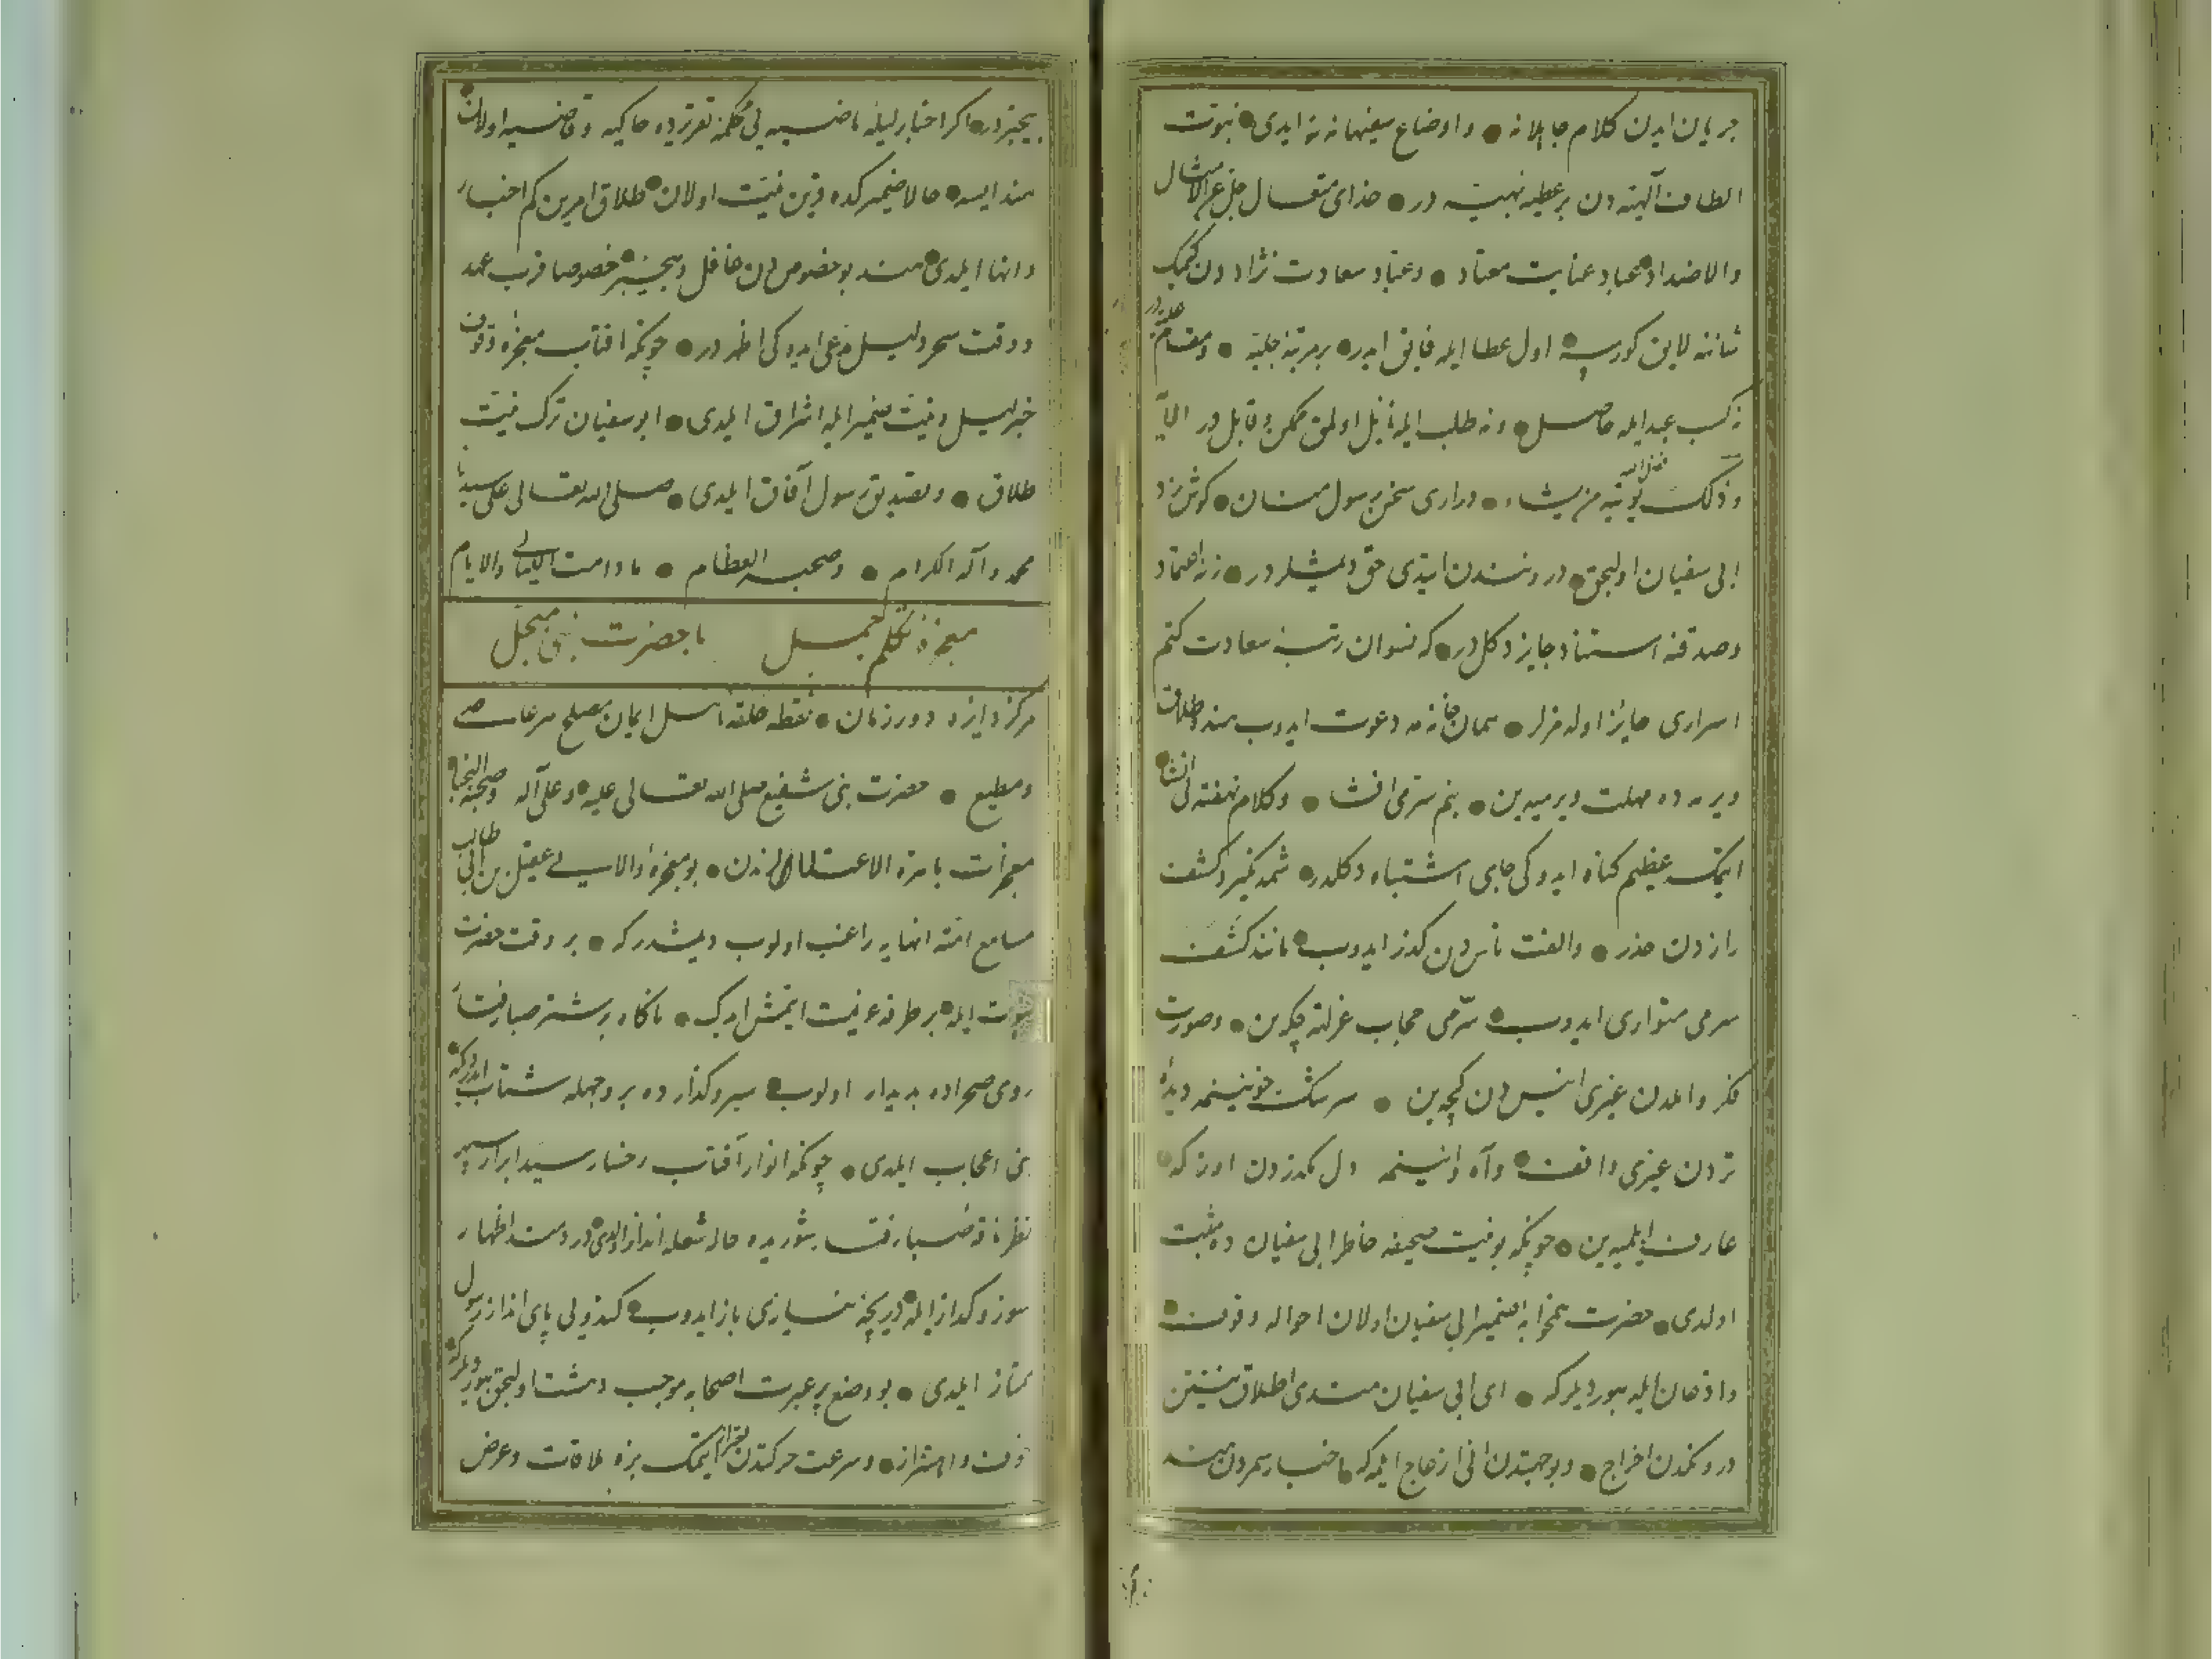 جریان ایدن کلام جاهلانه و اوضاع سفیهانه نه ایدی نبوت
الطاف آلهیه دن بر عطیه بهیه در خدای متعال جل عن الامثال
والاضداد عباد عنایت معتاد و عباد سعادت نژاد دن کیمک
شاننه لایق کورسه اول عطا ایله فایق ایدر بر مرتبهٔ جلیه و مقام علیه در
نه کسب عبد ایله حاصل و نه طلب ایله نایل اولمق ممکن و قابل در
وذلک فضل الله یؤتیه من یشاء دراری سخن رسول منان کوش زد
ابی سفیان اولیجق دروننندن ایتدی حق دیمشلر در زنه اعتماد
وصدقنه استناد جایز دکل در که نسوان رتبهٔ سعادت کتم
اسراری حایز اوله مزلر همان خانه مه دعوت ایدوب هنده طلاق
ویرمه ده مهلت ویرمیه ین بنم سرمی افشا و کلام نهفته لی انشا
ایتمک عظیم کناه ایدوکی جای اشتباه دکلدر کشف
رازدن حذر والفت ناس دن کذر ایدوب مانند کشف
سرمی متواری ایدوب سرمی حجاب عزلته چکه ین وصورت
فکر والمدن غیری انیس دن کچه ین سرشک خونینمه دیدهٔ
تردن غیری واقف وآه دل مکدردن اوزکه
عارف ایلمیه ین چونکه بو نیت صحیفهٔ خاطر ابی سفیان ده مثبت
اولدی حضرت ضمیر ابی سفیان اولان احواله وقوف
واذعان ایله بیوردیلر که ای ابی سفیان هندی اطلاق نیتین
درونکدن اخراج و بو جهتدن انی ازعاج ایلمه که هند
بیخبر در اکر اخبار لیلهٔ ماضیه لی محکمهٔ تقریرده حاکیه و قاضیه اولان
هند ایسه حالا ضمیرکده قرین نیت اولان طلاق امرین کم اخبار
وانها ایلدی هند بو خصوص دن غافل و بیخبر خصوصا قرب عهد
ووقت سحر دلیل مدعی ایدوکی اظهر در چونکه افتاب معجزهٔ وقوف
خبر لیل و نیت ضمیر ایله اشراق ایلدی ابو سفیان ترک نیت
طلاق و تصدیق رسول آفاق ایلدی صلی الله تعالی علی سیدنا
محمد وآله الکرام وصحبه العظام مادامت اللیالی والایام
معجزهٔ تکلم جمیل با حضرت نبی مبجل
مرکز دایرهٔ دور زمان نقطهٔ حلقهٔ اهل ایمان مصلح هر عاصی
ومطیع حضرت نبی شفیع صلی الله تعالی علیه وعلی آله وصحبه
معجزات باهرة الاعتلالرندن بو معجزهٔ والایی عقیل بن ابی طالب
مسامع امته انهایه راغب اولوب دیمشدر که بر وقت حضرت
نبوت ایله بر طرفه عزیمت ایتمش ایدک ناکاه بر شتر صبا رفتار
روی صحراده پدیدار اولوب سیر وکذارده بر وجهله شتاب ایدردی که
بنی اعجاب ایلدی چونکه انوار آفتاب رخسار سید ابرار
نظر ناقهٔ صبا رفتار شوریده حاله شعله انداز اولدی در دست اظهار
سوز وکداز ایله دریچهٔ نیازی باز ایدوب کندولی پای انداز رسول
ممتاز ایلدی بو وضع پر عبرت اصحابه موجب دهشت اولیجق بیوردیلر که
خوف واهتزاز و سرعت حرکتدن ایتمک بزه ملاقات وعرض